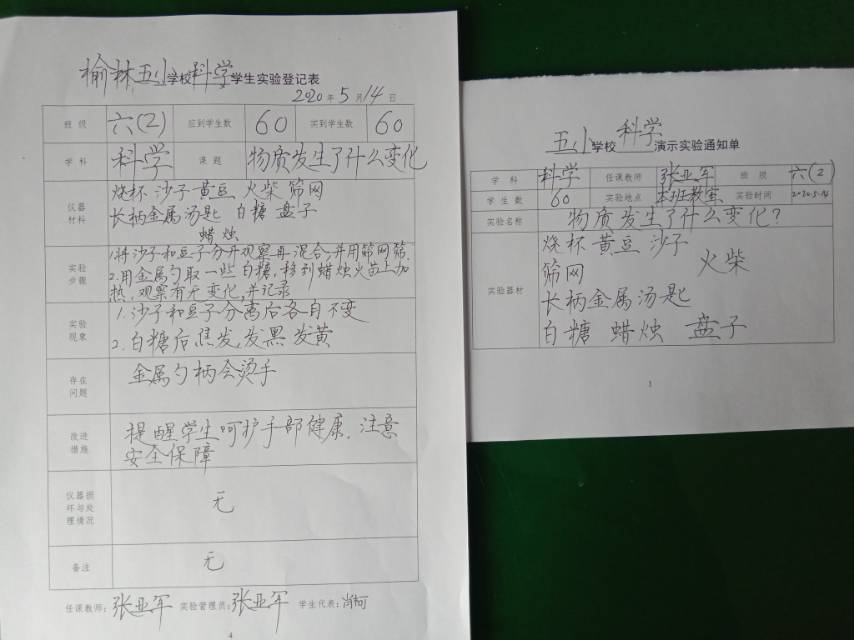 榆林五小学校科学学生实验登记表
2020年5月14日
班级 六(2) 应到学生数 60 实到学生数 60
学科 科学 课题 物质发生了什么变化
仪器材料 烧杯 沙子 黄豆 火柴 筛网
长柄金属汤匙 白糖 盘子
蜡烛
实验步骤 1.将沙子和豆子分开观察再混合,并用筛网筛.
2.用金属勺取一些白糖,移到蜡烛火苗上加
热,观察有无变化,并记录
实验现象 1.沙子和豆子分离后各自不变
2.白糖后 发,发黑 发黄
存在问题 金属勺柄会烫手
改进措施 提醒学生呵护手部健康.注意
安全保障
仪器损坏与处理情况 无
备注 无
任课教师:张亚军 实验管理员:张亚军 学生代表:
4
五小学校科学演示实验通知单
学科 科学 任课教师 张亚军 班级 六(2)
学生数 60 实验地点 本班教室 实验时间 2020.5.14
实验名称 物质发生了什么变化?
实验器材 烧杯 黄豆 沙子
火柴
筛网
长柄金属汤匙
白糖 蜡烛 盘子
1